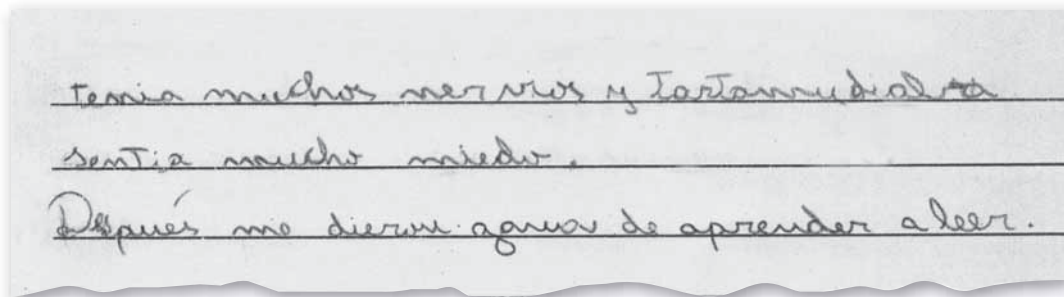 temia muchos nervios y tartamudiaba
sentia mucho miedo.
Después me dieron ganas de aprender a leer.